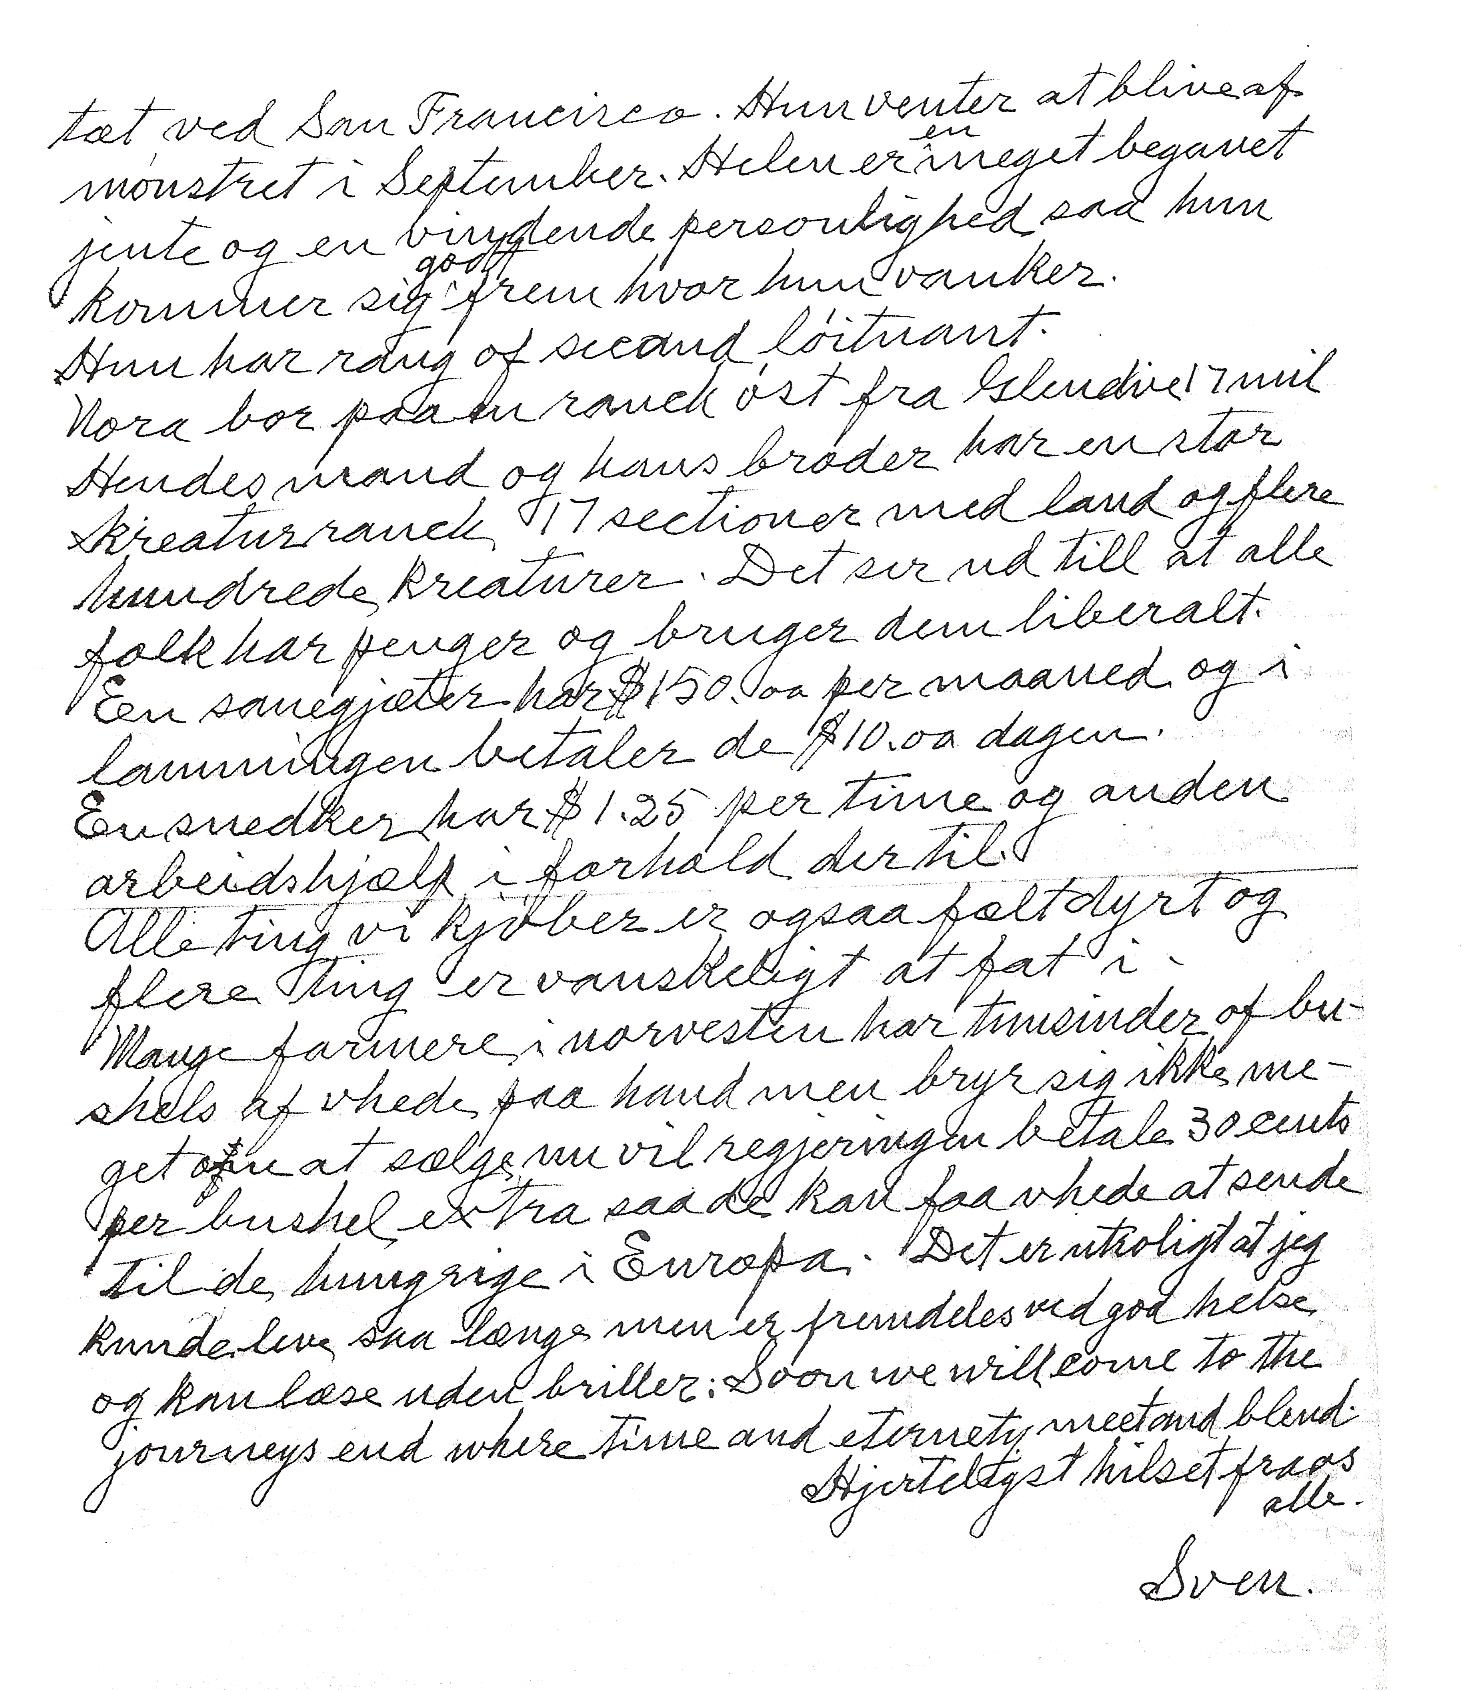 tæt ved San Francisco. Hun venter at blive af
mønstret i September. Helen er en meget begavet
jente og en vindende personlighed saa hun
kommer sig godt frem hvor hun vanker.
Hun har rang of second löitnant.
Nora bor paa en ranch øst fra Glendive 17 mil
Hendes mand og hans broder har en stor
kreatur ranch 17 sectioner med land og flere
hundrede kreaturer. Det ser ud till at alle
folk har penger og bruger dem liberalt.
Een sauegjæter har $150.00 per maaned og i
lammingen betaler de $10.00 dagen.
En snedker har $1.25 per time og anden
arbeidshjælp i forhold der til.
Alle ting vi kjøber er ogsaa fælt dyrt og
flere ting er vanskeligt at fat i -
Mange farmere i norvesten har tunsinder of bu-
shels af vhede paa hand men bryr sig ikke me-
get om at sælge, nu vil regjeringen betale 30 cents
per bushel extra saa de kan faa vhede at sende
til de hungrige i Europa. Det er utroligt at jeg
kunde leve saa længe men er fremdeles ved god helse
og kan læse uden briller: Soon we will come to the
journeys end where time and eternety meet and blend.
Hjerteligst hilset fra os
alle.
Sven.